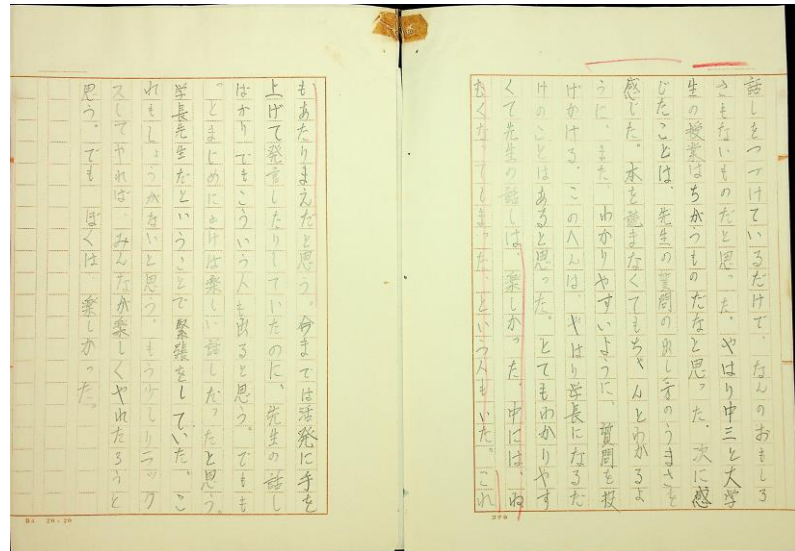 話しをつづけているだけで、なんのおもしろ
さもないものだと思った。やはり中三と大学
生の授業はちがうものだなと思った。次に感
じたことは、先生の質問の出し方のうまさを
感じた。本を読まなくてもちゃんとわかるよ
うに、また、わかりやすいように、質問を投
げかける。このへんは、やはり学長になるだ
けのことはあると思った。とてもわかりやす
くて先生の話しは、楽しかった。中には、ね
むくなってしまった、という人もいた。これ
もあたりまえだと思う。今までは活発に手を
上げて発言したりしていたのに、先生の話し
ばかり。でもこういう人も出ると思う。でもも
っとまじめにきけば楽しい話しだったと思う。
学長先生だということで緊張をしていた。こ
れもしょうがないと思う。もう少しリラック
スしてやれば、みんなが楽しくやれたろうと
思う。でも ぼくは、楽しかった。
20×20